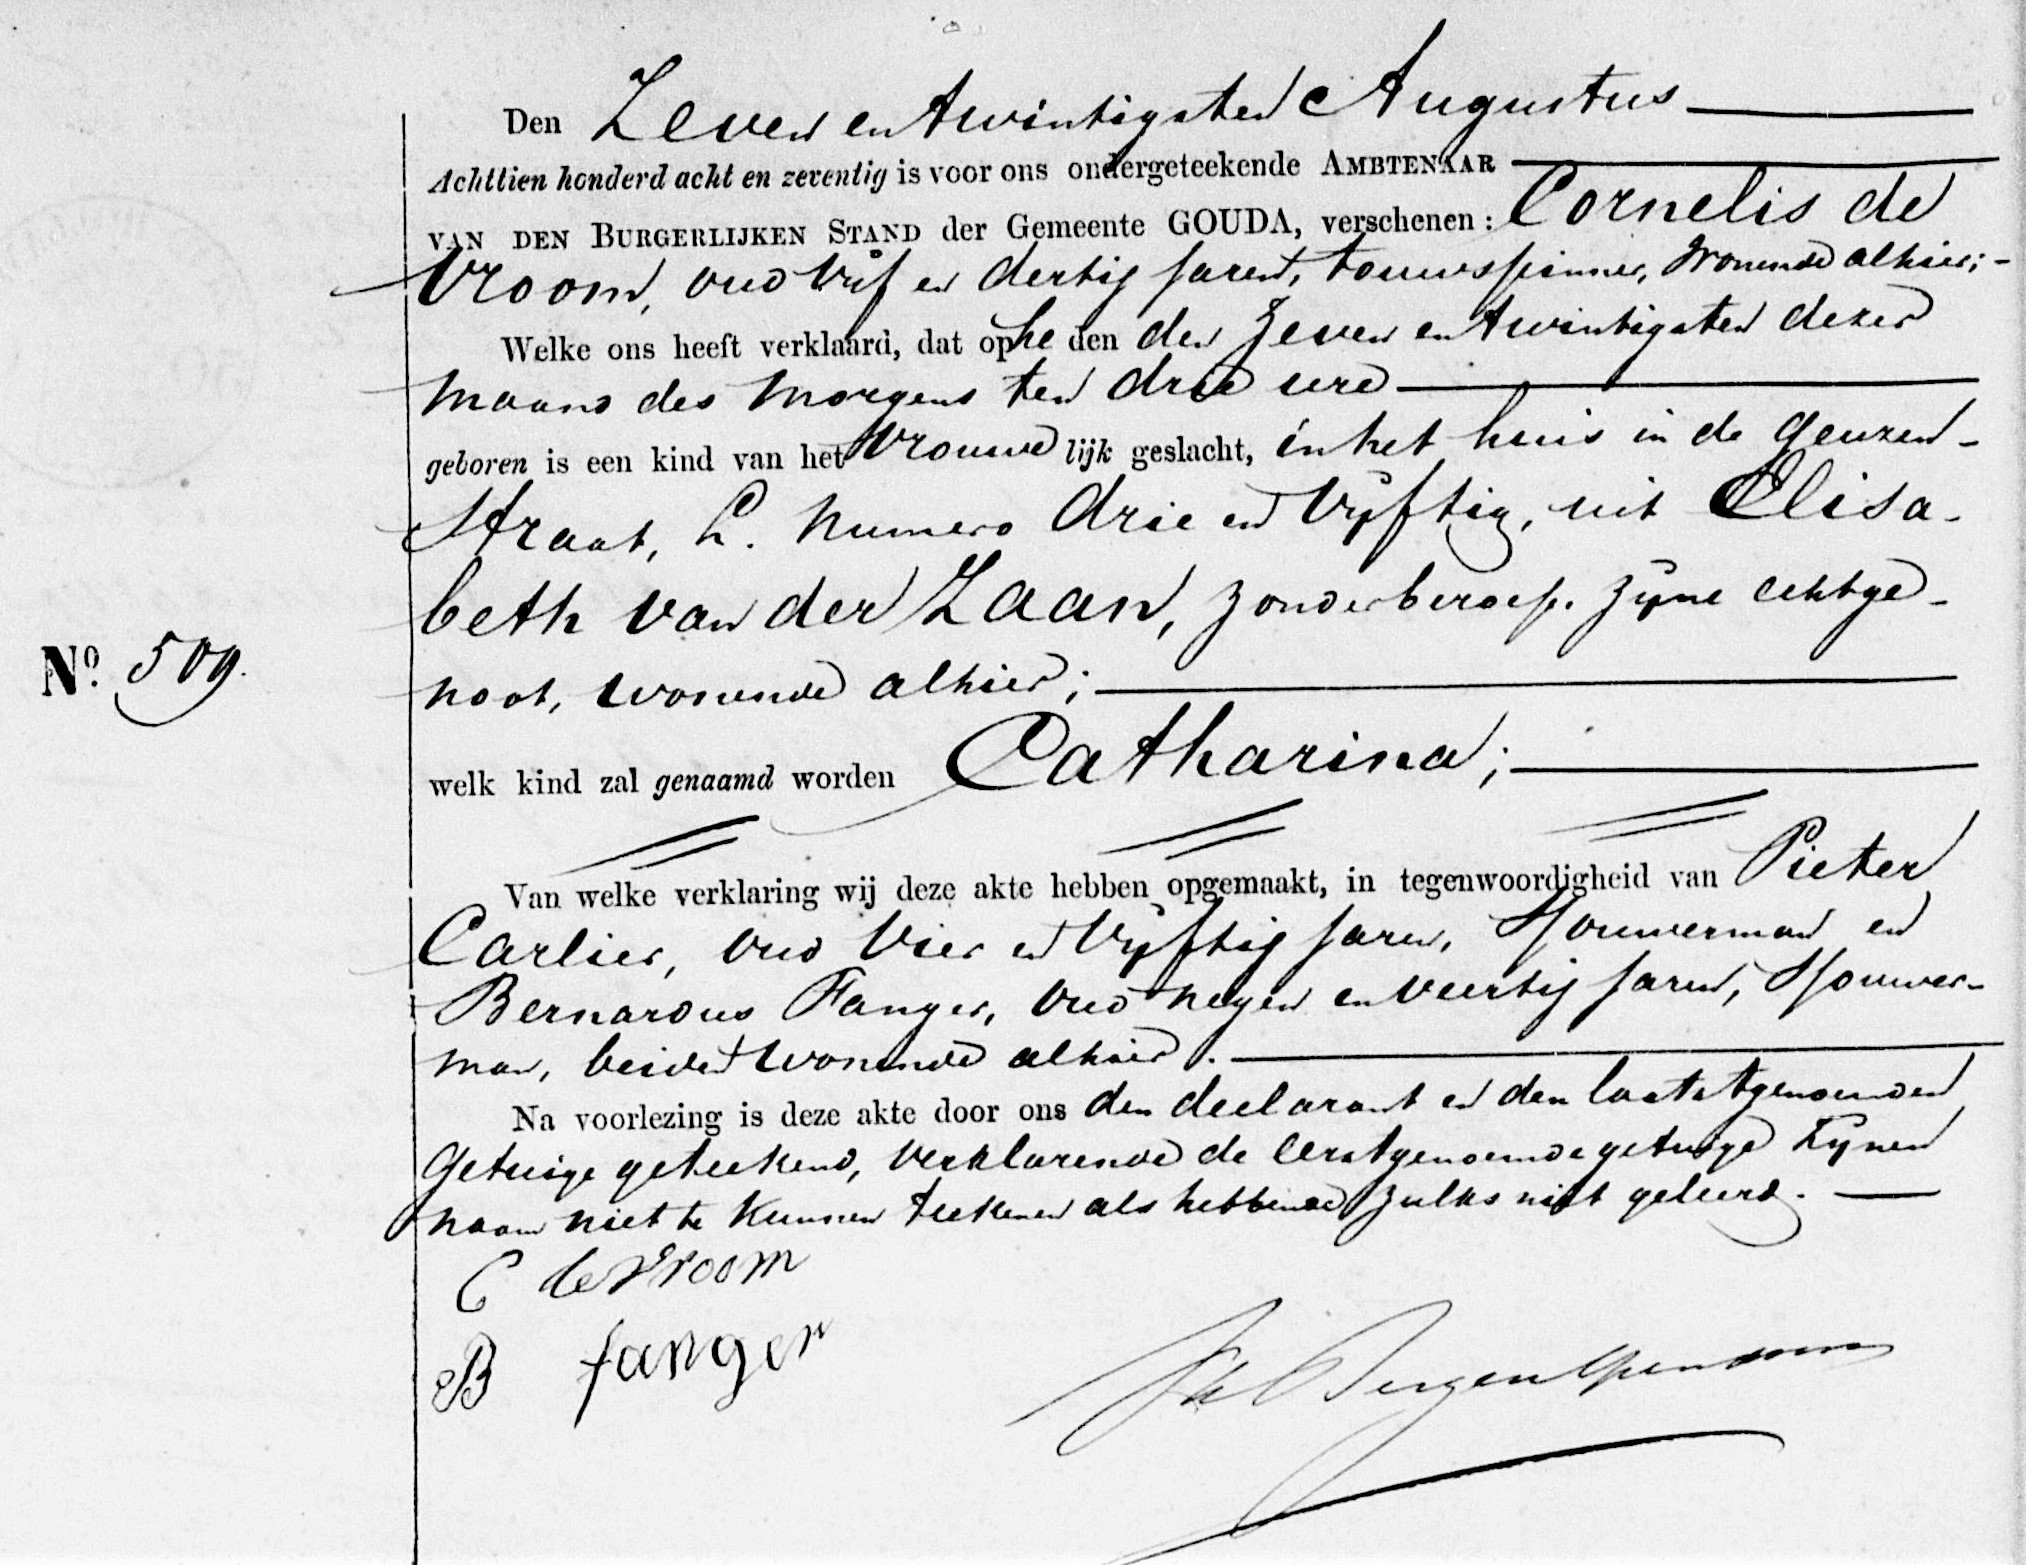 Den Zeven en twintigsten Augustus
Achttien honderd acht en zeventig is voor ons ondergeteekende AMBTENAAR
VAN DEN BURGERLIJKEN STAND der Gemeente GOUDA, verschenen: Cornelis de
Vroom, oud Vijf en dertig Jaren, touwspinner, Wonende alhier;
Welke ons heeft verklaard, dat op heden den Zeven en twintigsten dezer
maand des morgens ten drie ure
geboren is een kind van het Vrouwelijk geslacht, in het huis in de Geuzen-
Straat, L. Numero drie en Vijftig, uit Elisa-
beth van der Zaan, zonder beroep. zijne echtge-
No. 509.
noot, wonende alhier;
welk kind zal genaamd worden Catharina;
Van welke verklaring wij deze akte hebben opgemaakt, in tegenwoordigheid van Pieter
Carlier, oud Vier en Vijftig Jaren, Sjouwerman en
Bernardus Fanger, oud negen en veertig Jaren, Sjouwer-
man, beiden wonende alhier.
Na voorlezing is deze akte door ons den declarant en den laatstgenoemden
Getuige geteekend, verklarende de eerstgenoemde getuige zijnen
naam niet te kunnen teekenen als hebbende zulks niet geleerd.
C de Vroom
B fanger